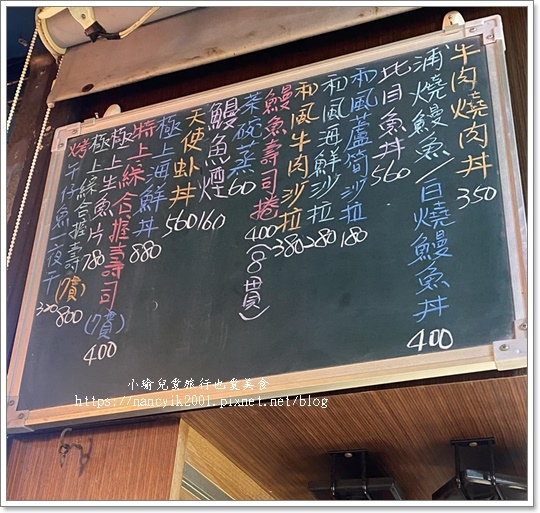 牛肉燒肉丼 350
浦燒鰻魚/白燒鰻魚丼 400
比目魚丼 560
和風蘆筍沙拉 180
和風海鮮沙拉 280
和風牛肉沙拉 380
鰻魚壽司捲 400(8貫)
茶碗蒸 60
鰻魚煙 160
天使虾丼 560
極上海鮮丼 880
特上綜合握壽司(7貫) 400
極上生魚片 780
極上綜合握壽(7貫) 800
烤午仔魚一夜干 320
小瑜兒愛旅行也愛美食
https://nancylk2001.pixnet.net/blog